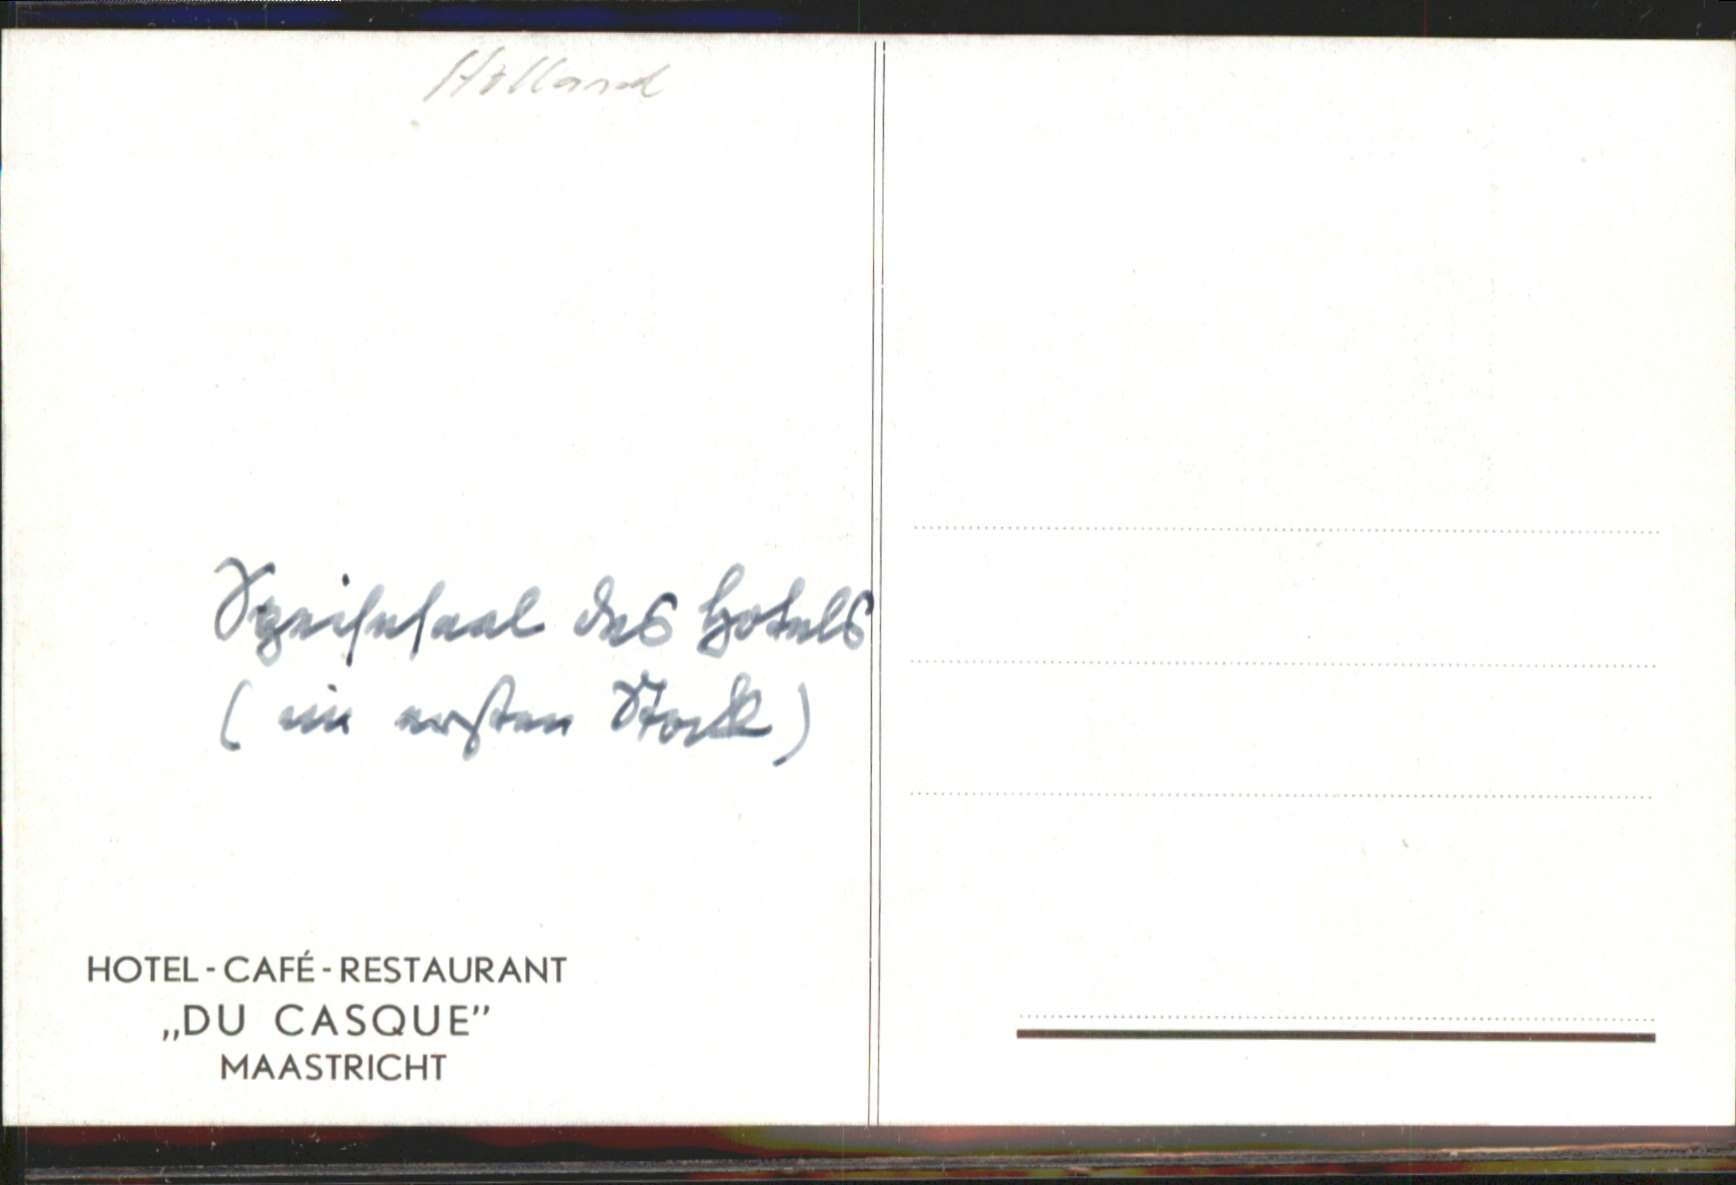 Holland
Speisesaal des Hotels
( im ersten Stock )
HOTEL - CAFÉ - RESTAURANT
„DU CASQUE”
MAASTRICHT